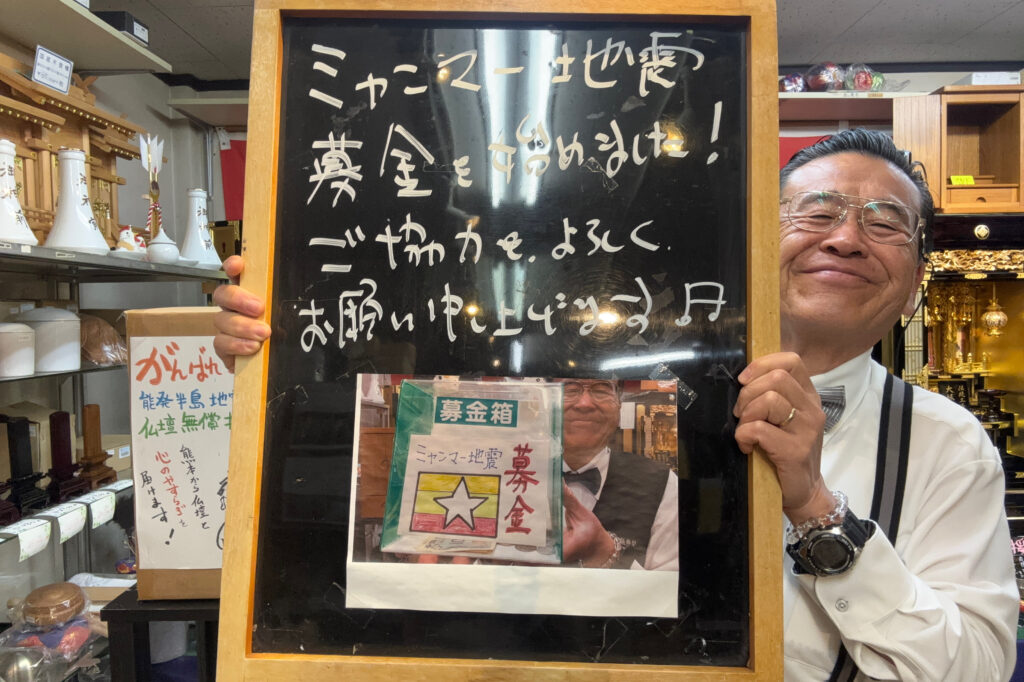 ミャンマー地震
募金を始めました!
ご協力を、よろしく
お願い申し上げまする♫
募金箱
ミャンマー地震
募金
がんばれ
能登半島地
仏壇無償
熊本から仏壇と
心のやすらぎを
届けます!